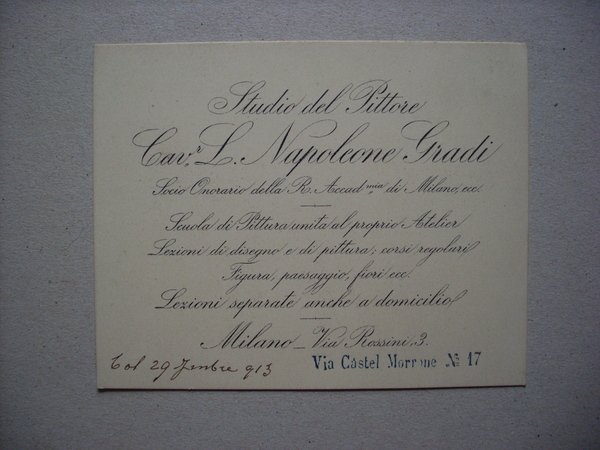 Studio del Pittore
Cav.r L. Napoleone Gradi
Socio Onorario della R. Accad.mia di Milano, ecc.
Scuola di Pittura unita al proprio Atelier
Lezioni di disegno e di pittura; corsi regolari
Figura, paesaggio, fiori ecc.
Lezioni separate anche a domicilio
Milano - Via Rossini, 3.
Via Castel Morrone № 17
29 913